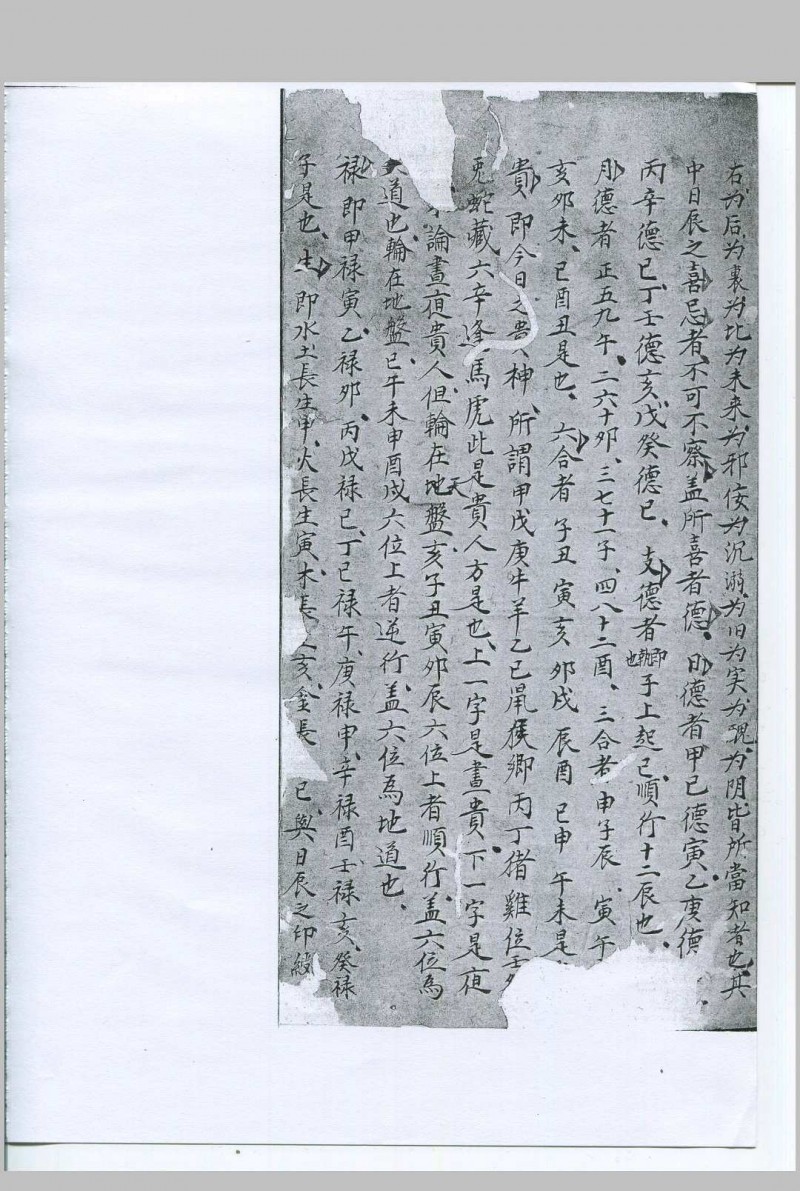 右为后、为裏、为北、为未来、为邪佞、为沉溺、为旧、为实、为观、为阴、皆所當知者也、其
中日辰之喜忌者、不可不察、盖所喜者德、日德者、甲己德寅、乙庚德
丙辛德巳、丁壬德亥、戊癸德巳、支德者即執也子上起巳、順行十二辰也、
月德者 正五九午、二六十夘、三七十一子、四八十二酉、三合者、申子辰、寅午
亥夘未、巳酉丑是也、六合者 子丑 寅亥 夘戌 辰酉 巳申 午未是
貴、即今日之贵神、所謂甲戊庚牛羊乙己鼠猴鄉丙丁猪雞位壬
兎蛇藏六辛逢馬虎此是貴人方是也、上一字是晝貴、下一字是夜
論晝夜貴人、但輪在地天盤、亥子丑寅夘辰六位上者順行、盖六位為
天道也、輪在地盤、巳午未申酉戌六位上者逆行、盖六位為地道也、
禄、即甲禄寅、乙禄夘、丙戊禄巳、丁己禄午、庚禄申、辛禄酉、壬禄亥、癸禄
子是也、生、即水土長生申、火長生寅、木長亥、金長 巳、與日辰之印綬